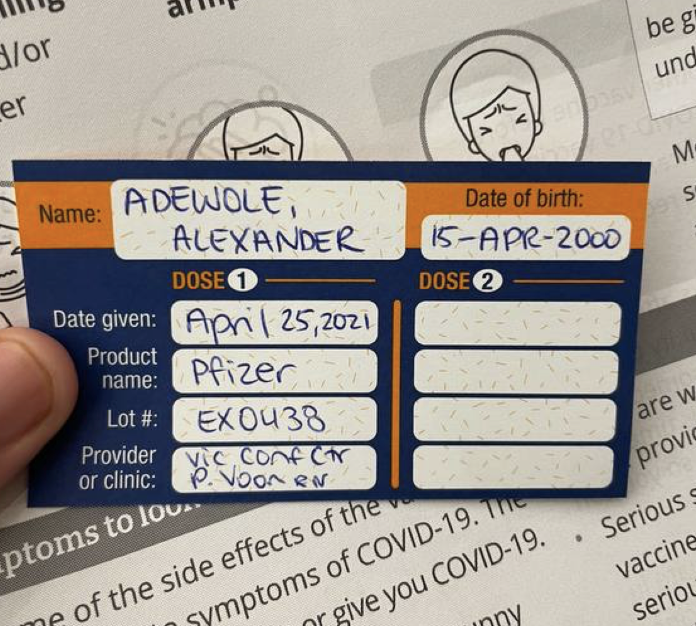 d/or
er
be gi
und
Name: ADEWOLE,
ALEXANDER
Date of birth:
15-APR-2000
DOSE 1
DOSE 2
Date given: April 25, 2021
Product
name: Pfizer
Lot #: EX0438
Provider
or clinic: Vic Conf Ctr
P. Voon RN
are w
provid
ptoms to loo
me of the side effects of the va
symptoms of COVID-19. The
or give you COVID-19.
nny
• Serious s
vaccine
seriou